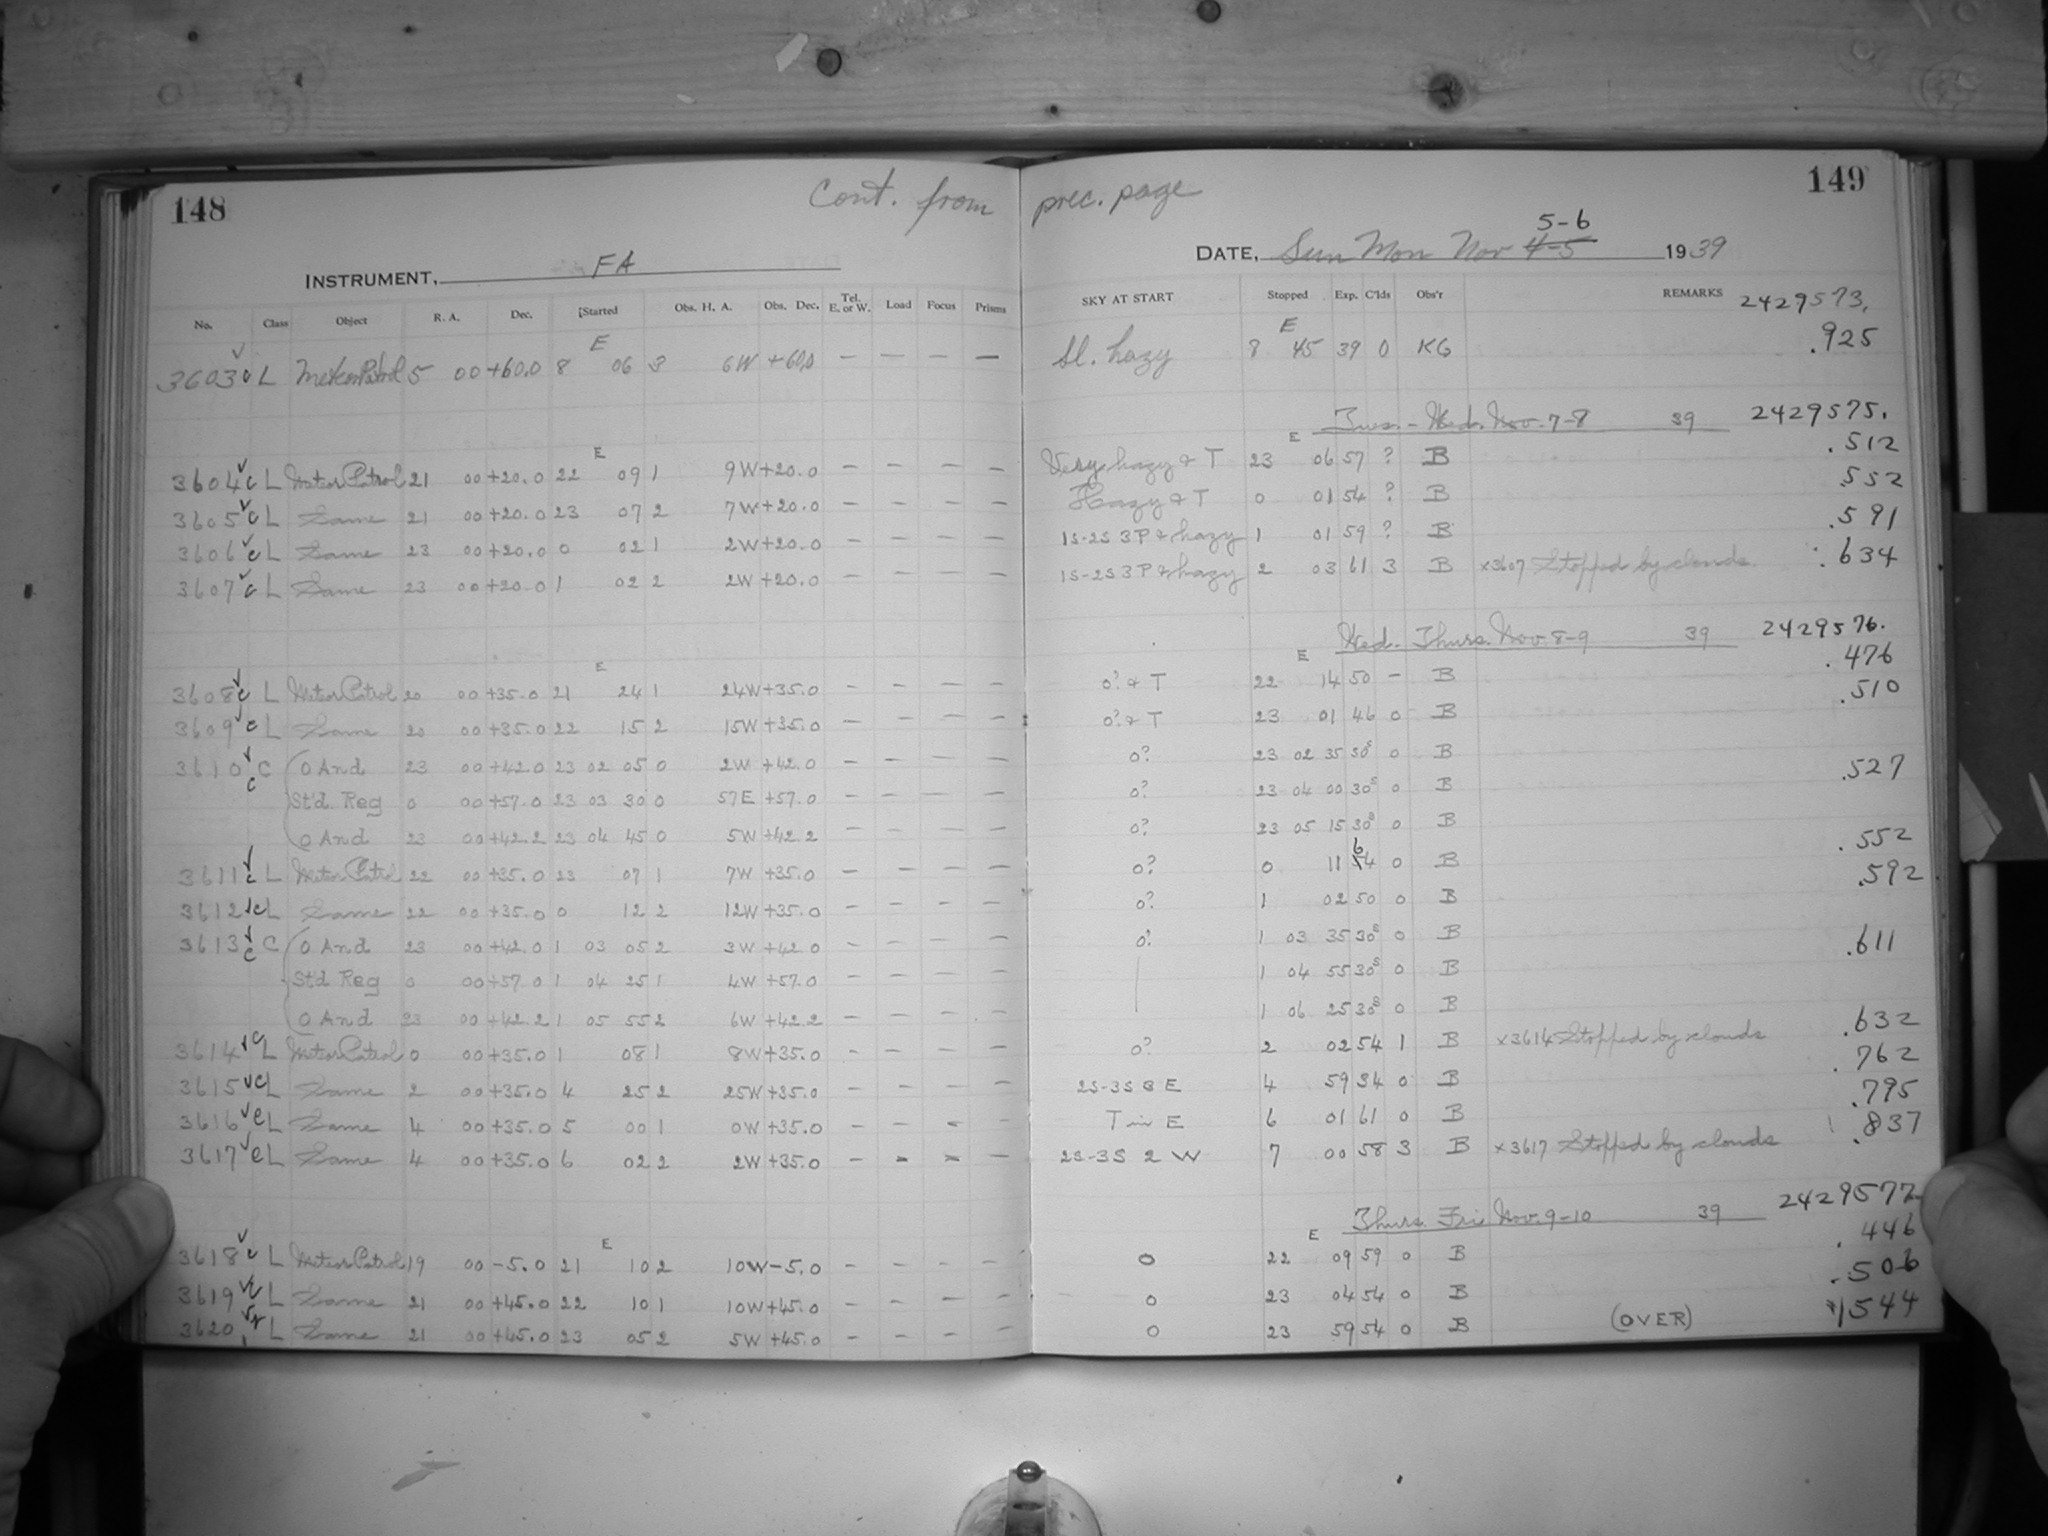 148 Cont. from prec. page 149
INSTRUMENT, FA DATE, Sun Mon Nov 4-5 5-6 1939
No. Class Object R. A. Dec. Started Obs. H. A. Obs. Dec. Tel. E. or W. Load Focus Prisms SKY AT START Stopped Exp. C'lds Obs'r REMARKS 2429573.
E E
3603 c L Meteor Patrol 5 00 +60.0 8 06 3 6W +60.0 — — — — Sl. hazy 8 45 39 0 KG .925
Tues. - Wed. Nov. 7-8 39 2429575.
E E
3604 c L Meteor Patrol 21 00 +20.0 22 09 1 9W +20.0 — — — — Very hazy & T 23 06 57 ? B .512
3605 c L Same 21 00 +20.0 23 07 2 7W +20.0 — — — — Hazy & T 0 01 54 ? B .552
3606 c L Same 23 00 +20.0 0 02 1 2W +20.0 — — — — 1S-2S 3P & hazy 1 01 59 ? B .591
3607 c L Same 23 00 +20.0 1 02 2 2W +20.0 — — — — 1S-2S 3P & hazy 2 03 61 3 B x3607 Stopped by clouds. .634
Wed. Thurs. Nov. 8-9 39 2429576.
E E
3608 c L Meteor Patrol 20 00 +35.0 21 24 1 24W +35.0 — — — — 0? & T 22 14 50 — B .476
3609 c L Same 20 00 +35.0 22 15 2 15W +35.0 — — — — 0? & T 23 01 46 0 B .510
3610 c C O And 23 00 +42.0 23 02 05 0 2W +42.0 — — — — 0? 23 02 35 30s 0 B
St'd. Reg 0 00 +57.0 23 03 30 0 57E +57.0 — — — — 0? 23 04 00 30s 0 B .527
O And 23 00 +42.2 23 04 45 0 5W +42.2 — — — — 0? 23 05 15 30s 0 B
3611 c L Meteor Patrol 22 00 +35.0 23 07 1 7W +35.0 — — — — 0? 0 11 64 0 B .552
3612 c L Same 22 00 +35.0 0 12 2 12W +35.0 — — — — 0? 1 02 50 0 B .592
3613 c C O And 23 00 +42.0 1 03 05 2 3W +42.0 — — — — 0? 1 03 35 30s 0 B
St'd Reg 0 00 +57.0 1 04 25 1 4W +57.0 — — — — 1 04 55 30s 0 B .611
O And 23 00 +42.2 1 05 55 2 6W +42.2 — — — — 1 06 25 30s 0 B
3614 c L Meteor Patrol 0 00 +35.0 1 08 1 8W +35.0 — — — — 0? 2 02 54 1 B x3614 Stopped by clouds .632
3615 c L Same 2 00 +35.0 4 25 2 25W +35.0 — — — — 2S-3S 8 E 4 59 34 0 B .762
3616 c L Same 4 00 +35.0 5 00 1 0W +35.0 — — — — T in E 6 01 61 0 B .795
3617 c L Same 4 00 +35.0 6 02 2 2W +35.0 — — — — 2S-3S 2 W 7 00 58 3 B x3617 Stopped by clouds .837
Thurs. Fri Nov. 9-10 39 2429577.
E E
3618 c L Meteor Patrol 19 00 -5.0 21 10 2 10W -5.0 — — — — 0 22 09 59 0 B .446
3619 c L Same 21 00 +45.0 22 10 1 10W +45.0 — — — — 0 23 04 54 0 B .506
3620 L Same 21 00 +45.0 23 05 2 5W +45.0 — — — — 0 23 59 54 0 B (OVER) .544